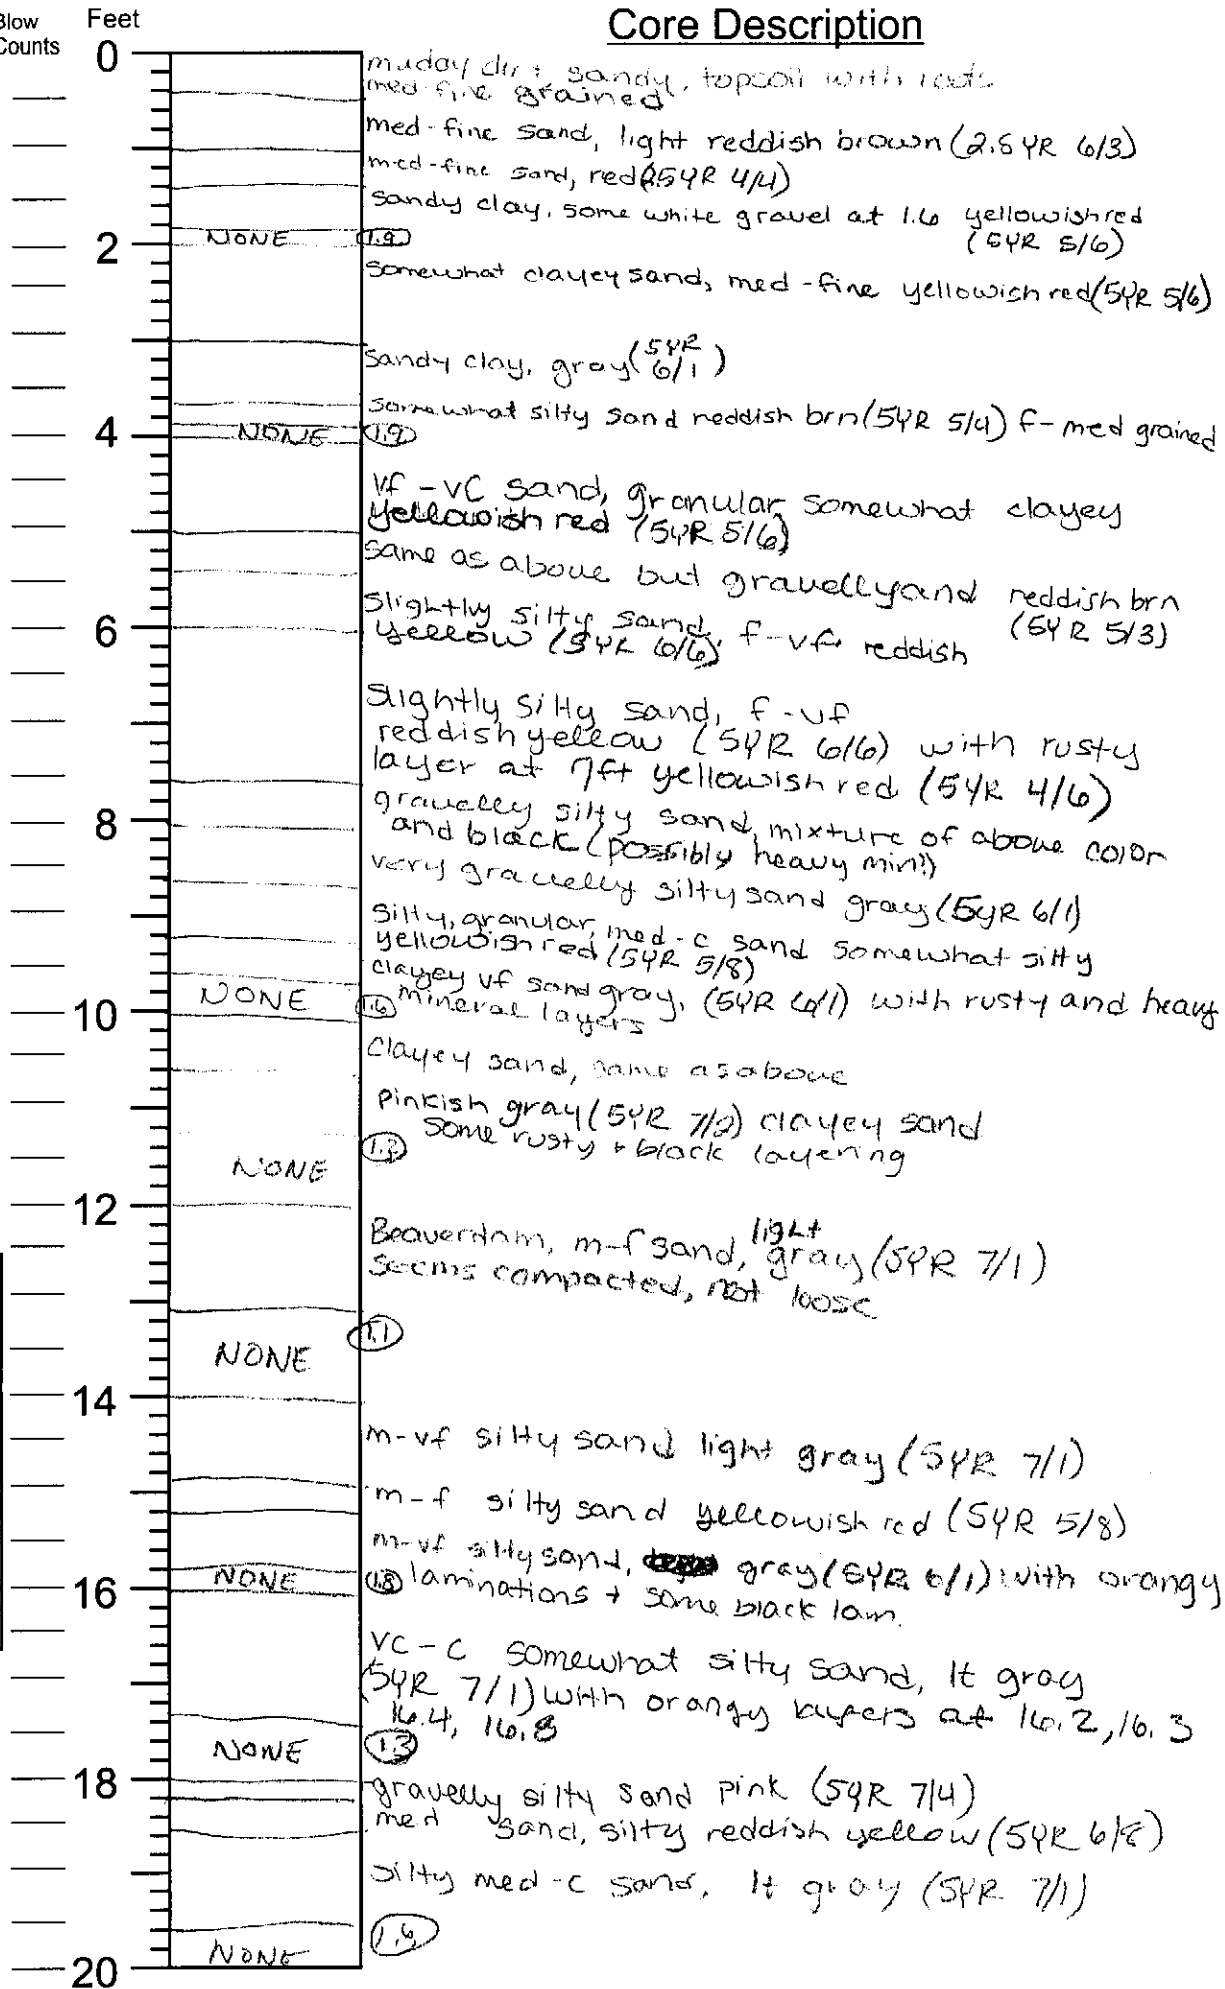 Blow
Counts
Feet
Core Description
0
muday dirt, sandy, topsoil with roots
med fine grained
med-fine sand, light reddish brown (2.5YR 6/3)
med-fine sand, red (2.5YR 4/4)
sandy clay, some white gravel at 1.6 yellowish red
(5YR 5/6)
2
NONE
1.9
somewhat clayey sand, med-fine yellowish red (5YR 5/6)
sandy clay, gray (5YR
6/1)
somewhat silty sand reddish brn (5YR 5/4) f-med grained
4
NONE
1.9
vf-vc sand, granular somewhat clayey
yellowish red (5YR 5/6)
same as above but gravelly and reddish brn
(5YR 5/3)
slightly silty sand, f-vf, reddish
yellow (5YR 6/6)
6
slightly silty sand, f-vf
reddish yellow (5YR 6/6) with rusty
layer at 7ft yellowish red (5YR 4/6)
gravelly silty sand, mixture of above color
and black (possibly heavy min?)
8
very gravelly silty sand gray (5YR 6/1)
silty, granular, med-c sand somewhat silty
yellowish red (5YR 5/8)
clayey vf sand gray, (5YR 6/1) with rusty and heavy
mineral layers
NONE
1.6
10
clayey sand, same as above
pinkish gray (5YR 7/2) clayey sand
some rusty + black layering
1.2
NONE
12
Beaverdam, m-f sand, light gray (5YR 7/1)
seems compacted, not loose
1.1
NONE
14
m-vf silty sand light gray (5YR 7/1)
m-f silty sand yellowish red (5YR 5/8)
m-vf silty sand, gray (5YR 6/1) with orangy
laminations + some black lam.
NONE
1.8
16
vc-c somewhat silty sand, lt gray
(5YR 7/1) with orangy layers at 16.2, 16.3
16.4, 16.8
NONE
1.3
18
gravelly silty sand pink (5YR 7/4)
med sand, silty reddish yellow (5YR 6/8)
silty med-c sand, lt gray (5YR 7/1)
1.6
NONE
20